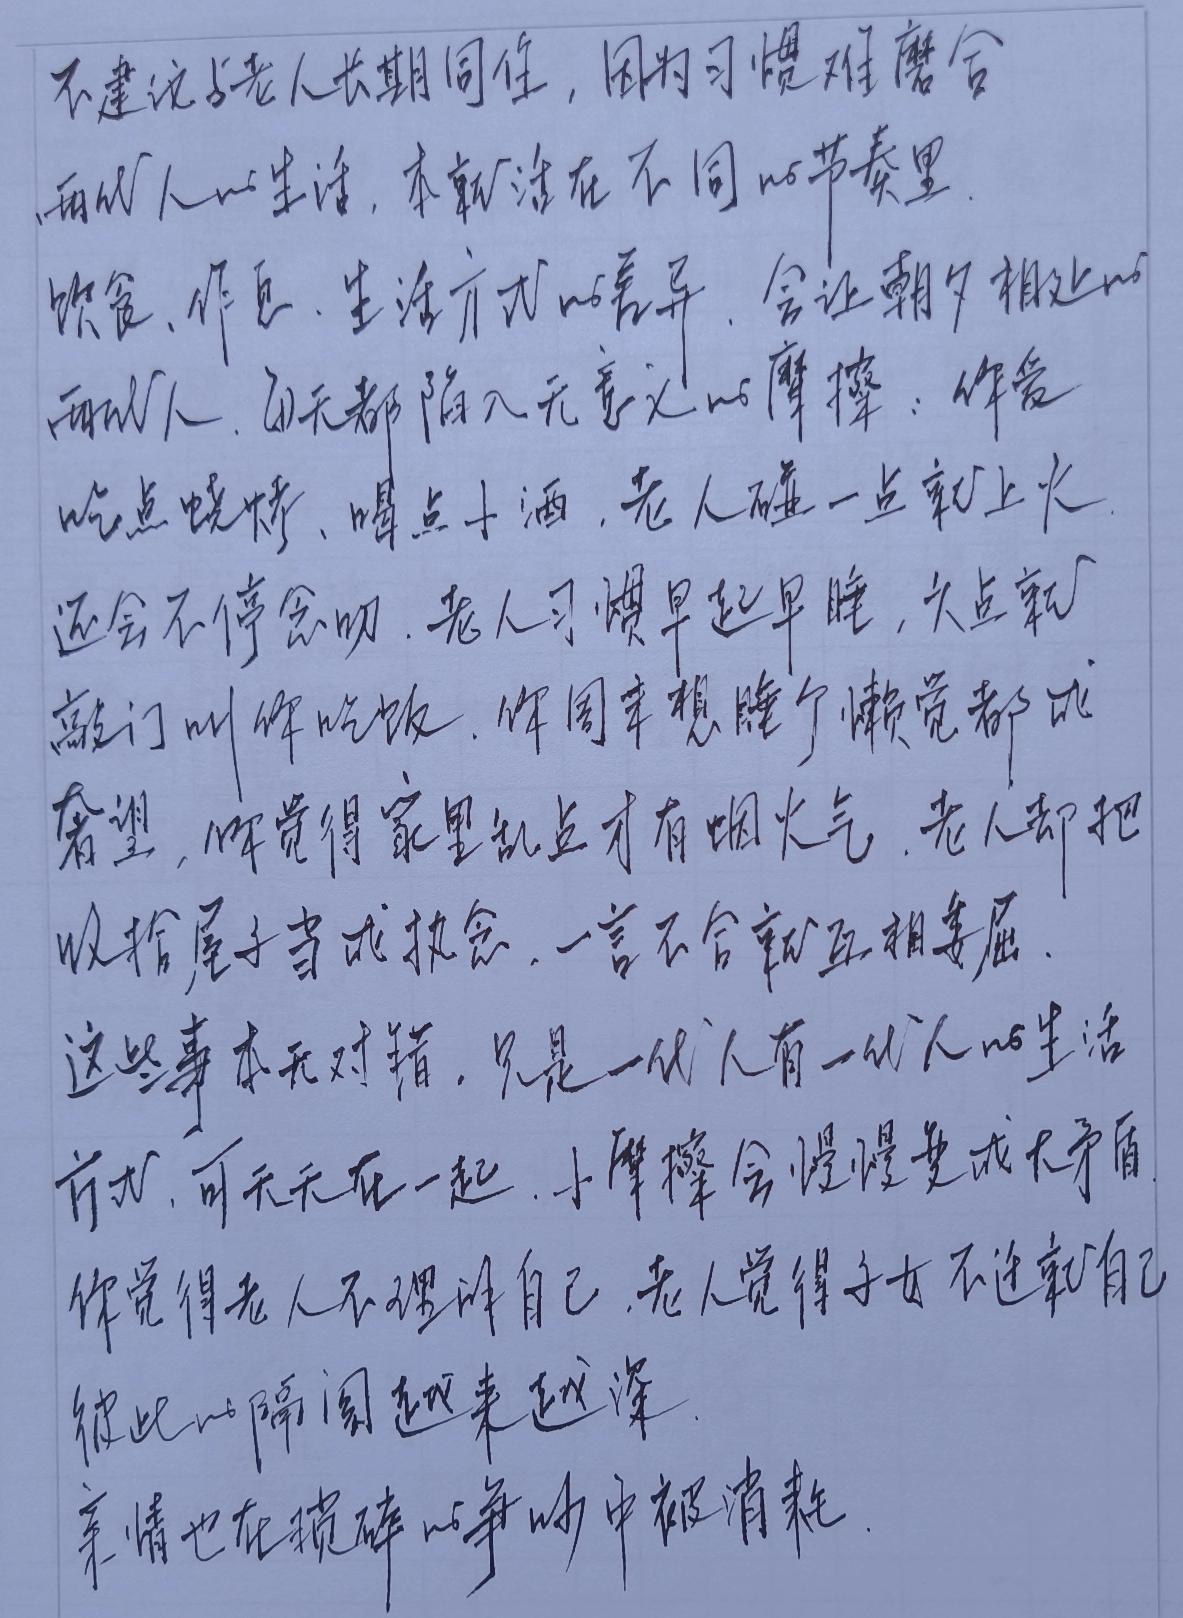 不建议与老人长期同住，因为习惯难磨合
两代人的生活，本就活在不同的节奏里.
饮食、作息、生活方式的差异、会让朝夕相处的
两代人、每天都陷入无意义的摩擦：你爱
吃点烧烤、喝点小酒，老人碰一点就上火.
还会不停念叨.老人习惯早起早睡，六点就
敲门叫你吃饭.你周末想睡个懒觉都成
奢望，你觉得家里乱点才有烟火气.老人却把
收拾屋子当成执念.一言不合就互相委屈.
这些事本无对错.只是一代人有一代人的生活
方式.可天天在一起.小摩擦会慢慢变成大矛盾.
你觉得老人不理解自己.老人觉得子女不迁就自己
彼此的隔阂越来越深.
亲情也在琐碎的争吵中被消耗.